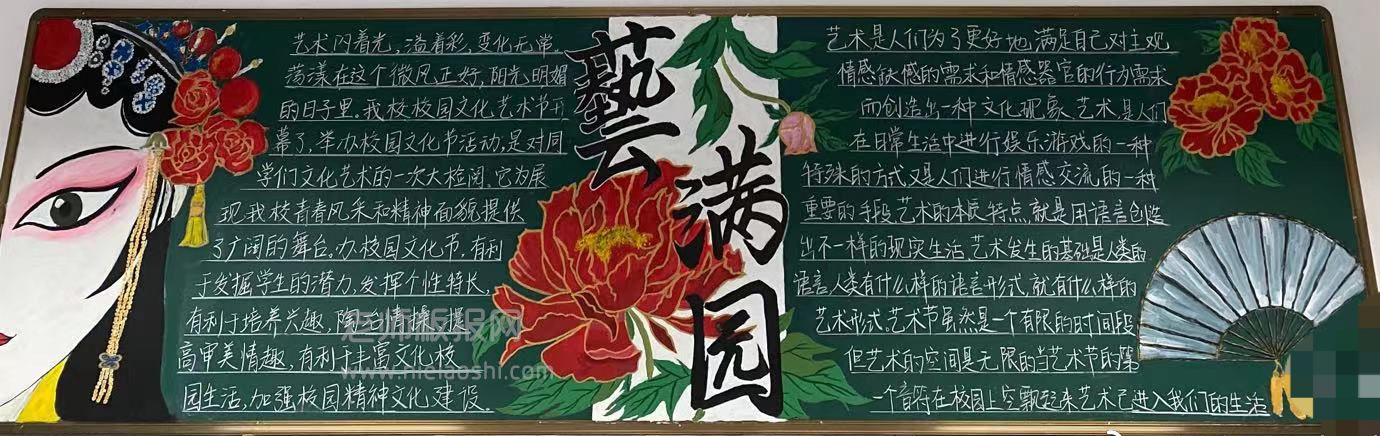 艺术闪着光,溢着彩,变化无常.
荡漾在这个微风正好,阳光明媚
的日子里。我校校园文化艺术节开
幕了,举办校园文化节活动,是对同
学们文化艺术的一次大检阅。它为展
现我校青春风采和精神面貌提供
了广阔的舞台。办校园文化节,有利
于发掘学生的潜力,发挥个性特长,
有利于培养兴趣,陶冶情操,提
高审美情趣,有利于丰富文化校
园生活,加强校园精神文化建设。
藝
满
园
艺术是人们为了更好地满足自己对主观
情感缺憾的需求和情感器官的行为需求
而创造出一种文化现象、艺术,是人们
在日常生活中进行娱乐游戏的一种
特殊的方式又是人们进行情感交流,的一种
重要的手段,艺术的本质特点,就是用语言创造
出不一样的现实生活,艺术发生的基础是人类的
语言,人类有什么样的语言形式,就有什么样的
艺术形式,艺术节虽然是一个有限的时间段
但艺术的空间是无限的当艺术节的第
一个音符在校园上空飘起来艺术已进入我们的生活
老师板报网
www.hielaoshi.com